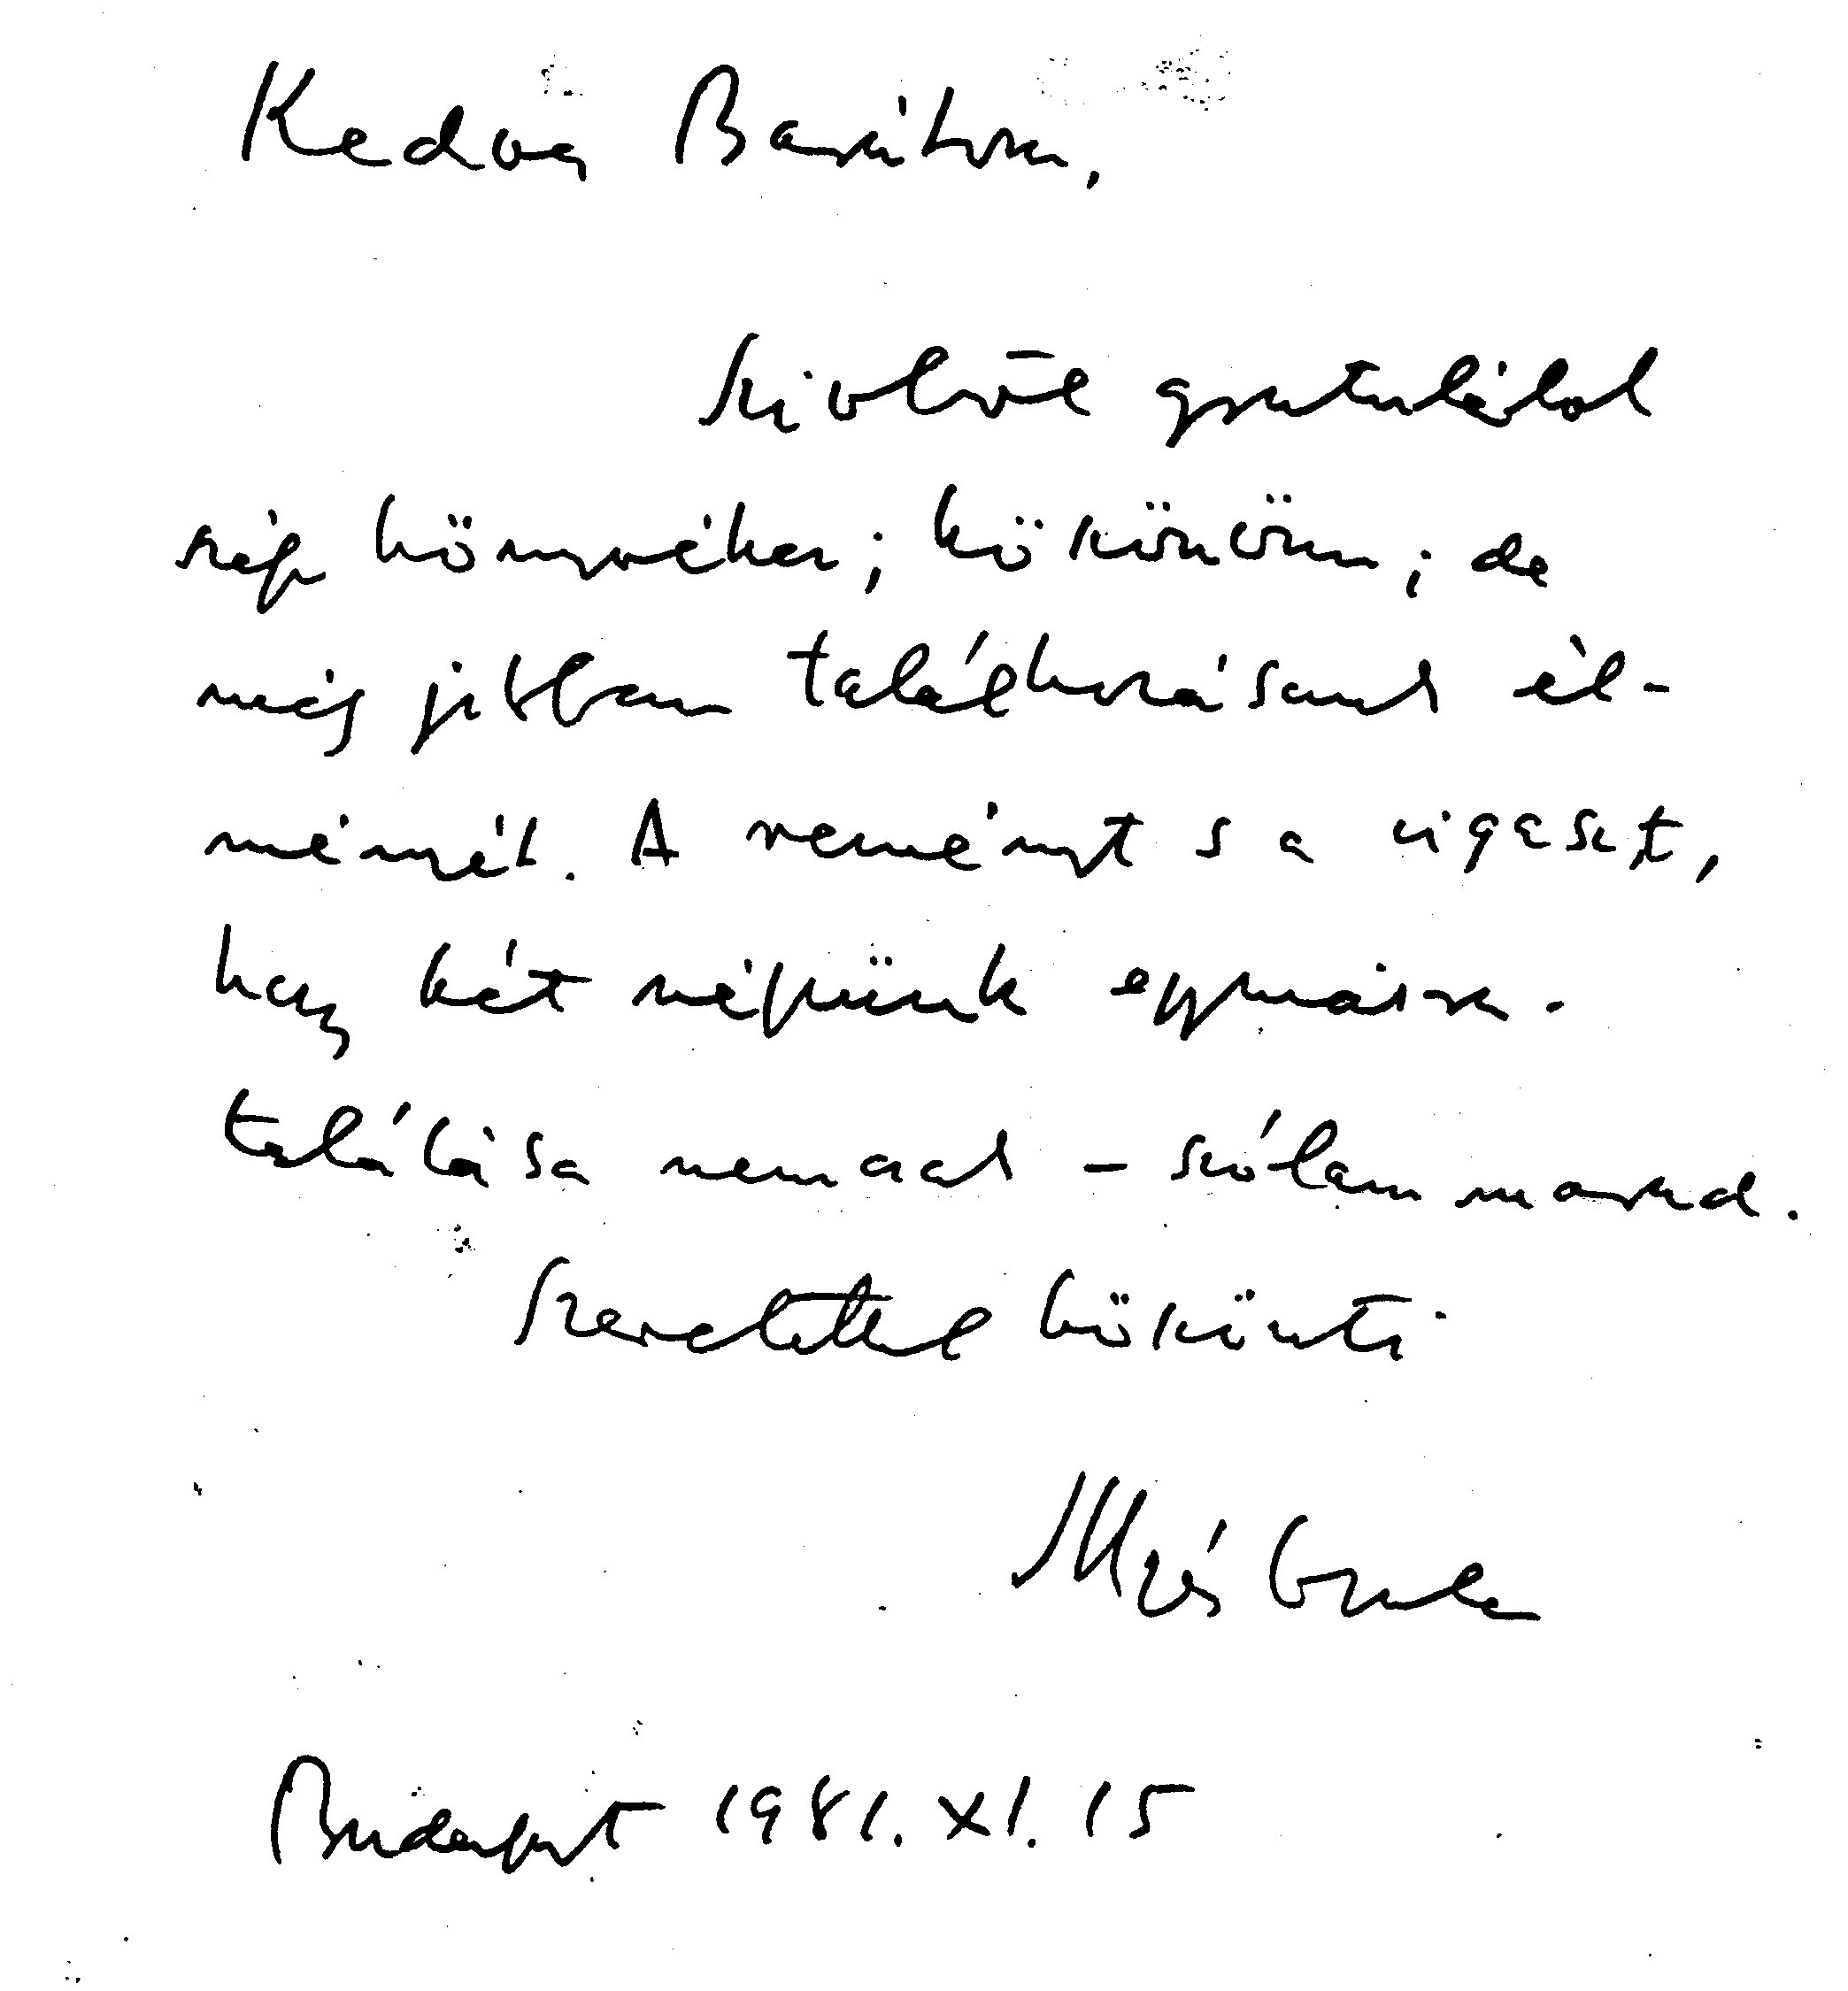 Kedves Barátom,
szivből gratulálok
szép könyvéhez; köszönöm; de
még jobban találkozásunk él-
ményét. A reményt s a vigaszt,
hogy két népünk egymásra-
találása nemcsak – szólam marad.
Szeretettel köszönti
Illyés Gyula
Budapest 1981. XI. 15